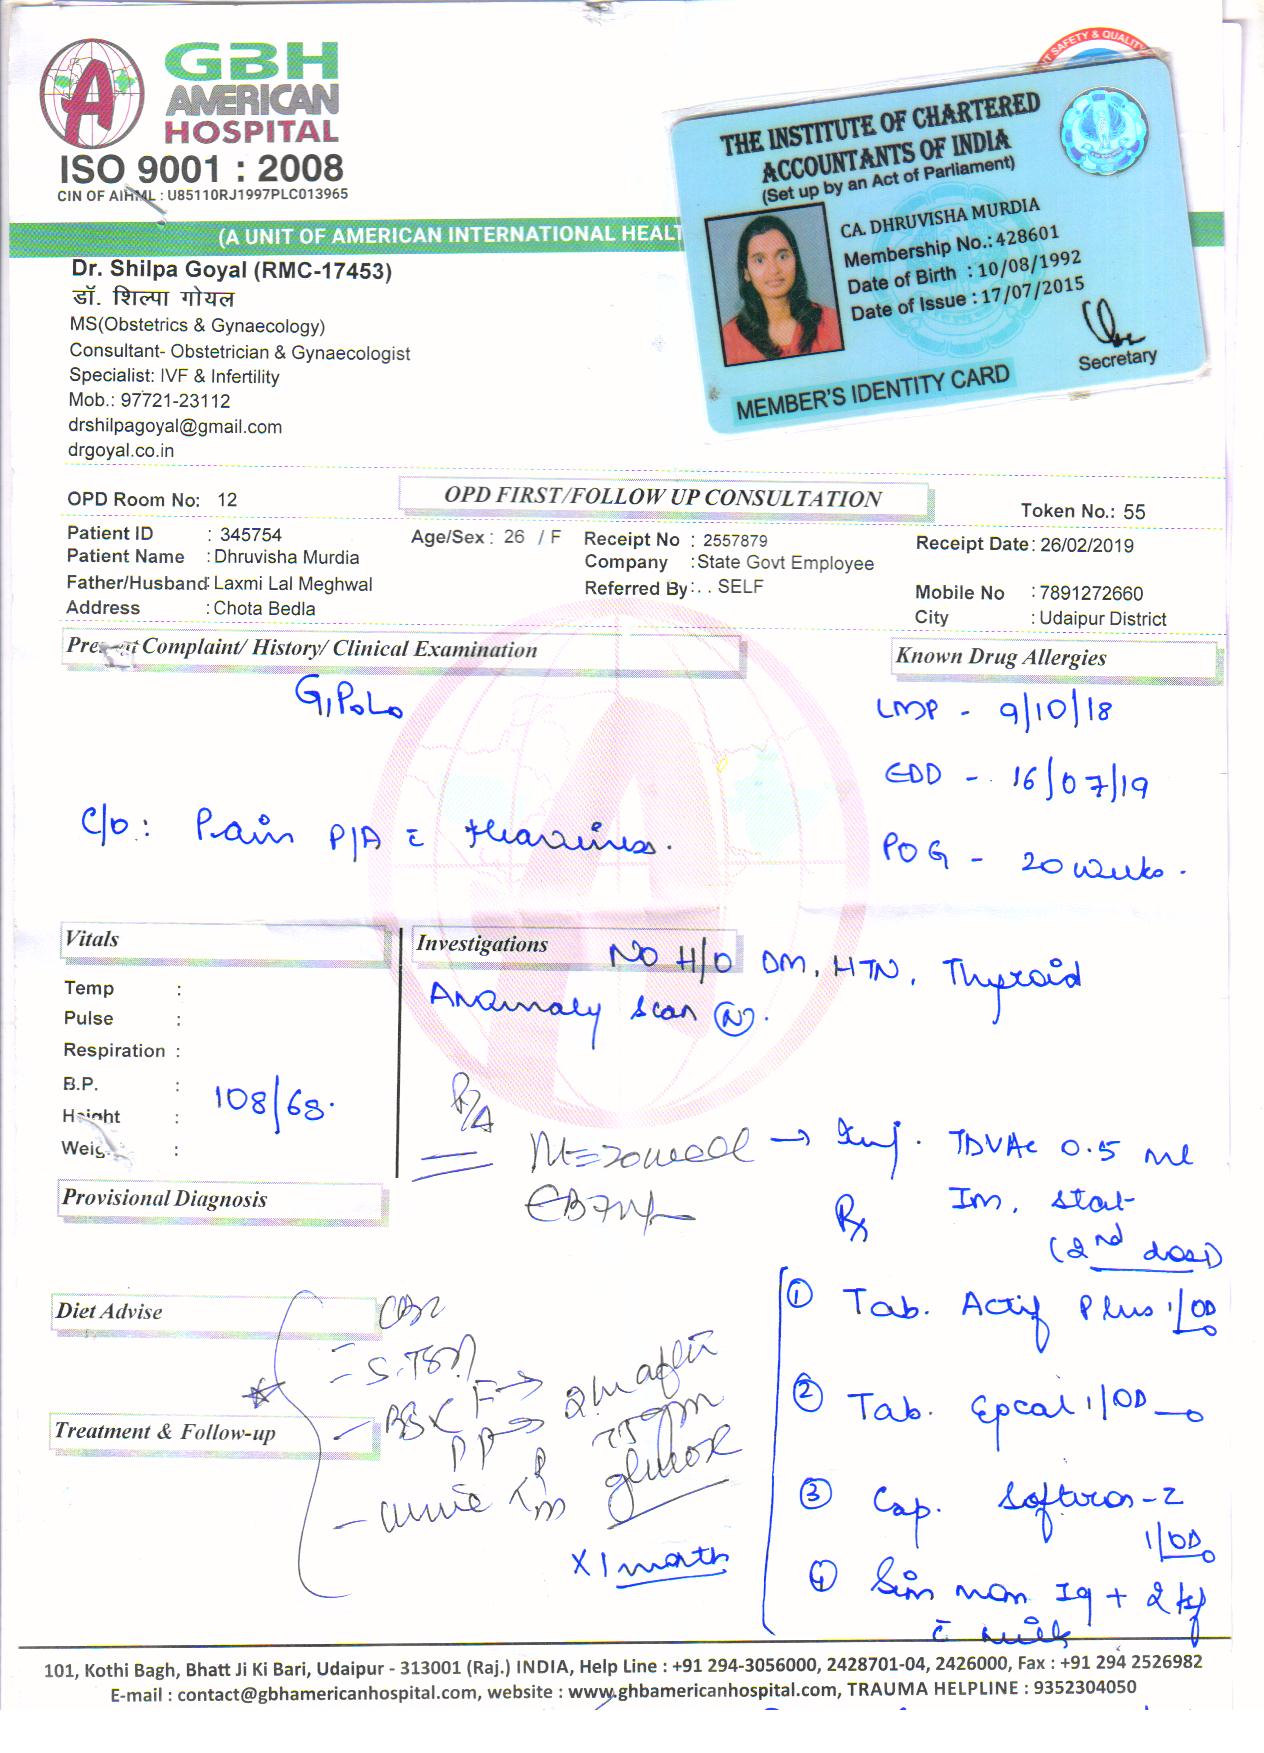 GBH
AMERICAN
HOSPITAL
ISO 9001 : 2008
CIN OF AIHML : U85110RJ1997PLC013965
T SAFETY & QUALITY
THE INSTITUTE OF CHARTERED
ACCOUNTANTS OF INDIA
(Set up by an Act of Parliament)
CA. DHRUVISHA MURDIA
Membership No.: 428601
Date of Birth : 10/08/1992
Date of Issue : 17/07/2015
Secretary
MEMBER'S IDENTITY CARD
(A UNIT OF AMERICAN INTERNATIONAL HEALT
Dr. Shilpa Goyal (RMC-17453)
डॉ. शिल्पा गोयल
MS(Obstetrics & Gynaecology)
Consultant- Obstetrician & Gynaecologist
Specialist: IVF & Infertility
Mob.: 97721-23112
drshilpagoyal@gmail.com
drgoyal.co.in
OPD Room No: 12
OPD FIRST/FOLLOW UP CONSULTATION
Token No.: 55
Patient ID : 345754 Age/Sex : 26 / F Receipt No : 2557879 Receipt Date : 26/02/2019
Patient Name : Dhruvisha Murdia Company : State Govt Employee
Father/Husband: Laxmi Lal Meghwal Referred By :. . SELF Mobile No : 7891272660
Address : Chota Bedla City : Udaipur District
Present Complaint/ History/ Clinical Examination
Known Drug Allergies
G1P0L0
LMP - 9/10/18
EDD - 16/07/19
C/o : Pain P/A c̄ Heaviness.
POG - 20 weeks.
Vitals
Investigations
No H/O DM, HTN, Thyroid
Anamoly Scan (N).
Temp :
Pulse :
Respiration :
B.P. : 108/68.
Height :
Weig :
P/A
→ Inj. TDVAC 0.5 ml
Im. Stat
(2nd dose)
Provisional Diagnosis
Rx
① Tab. Actif Plus 1/OD
Diet Advise
CBC
- S.TSH
- BSX F → 2hr after
PP → 75gm
glucose
Treatment & Follow-up
② Tab. Epcal 1/OD
- urine
③ Cap. Softron-Z
1/OD
x 1 month
④ Sim mom Iq + 2 tsf
c̄ milk
101, Kothi Bagh, Bhatt Ji Ki Bari, Udaipur - 313001 (Raj.) INDIA, Help Line : +91 294-3056000, 2428701-04, 2426000, Fax : +91 294 2526982
E-mail : contact@gbhamericanhospital.com, website : www.ghbamericanhospital.com, TRAUMA HELPLINE : 9352304050